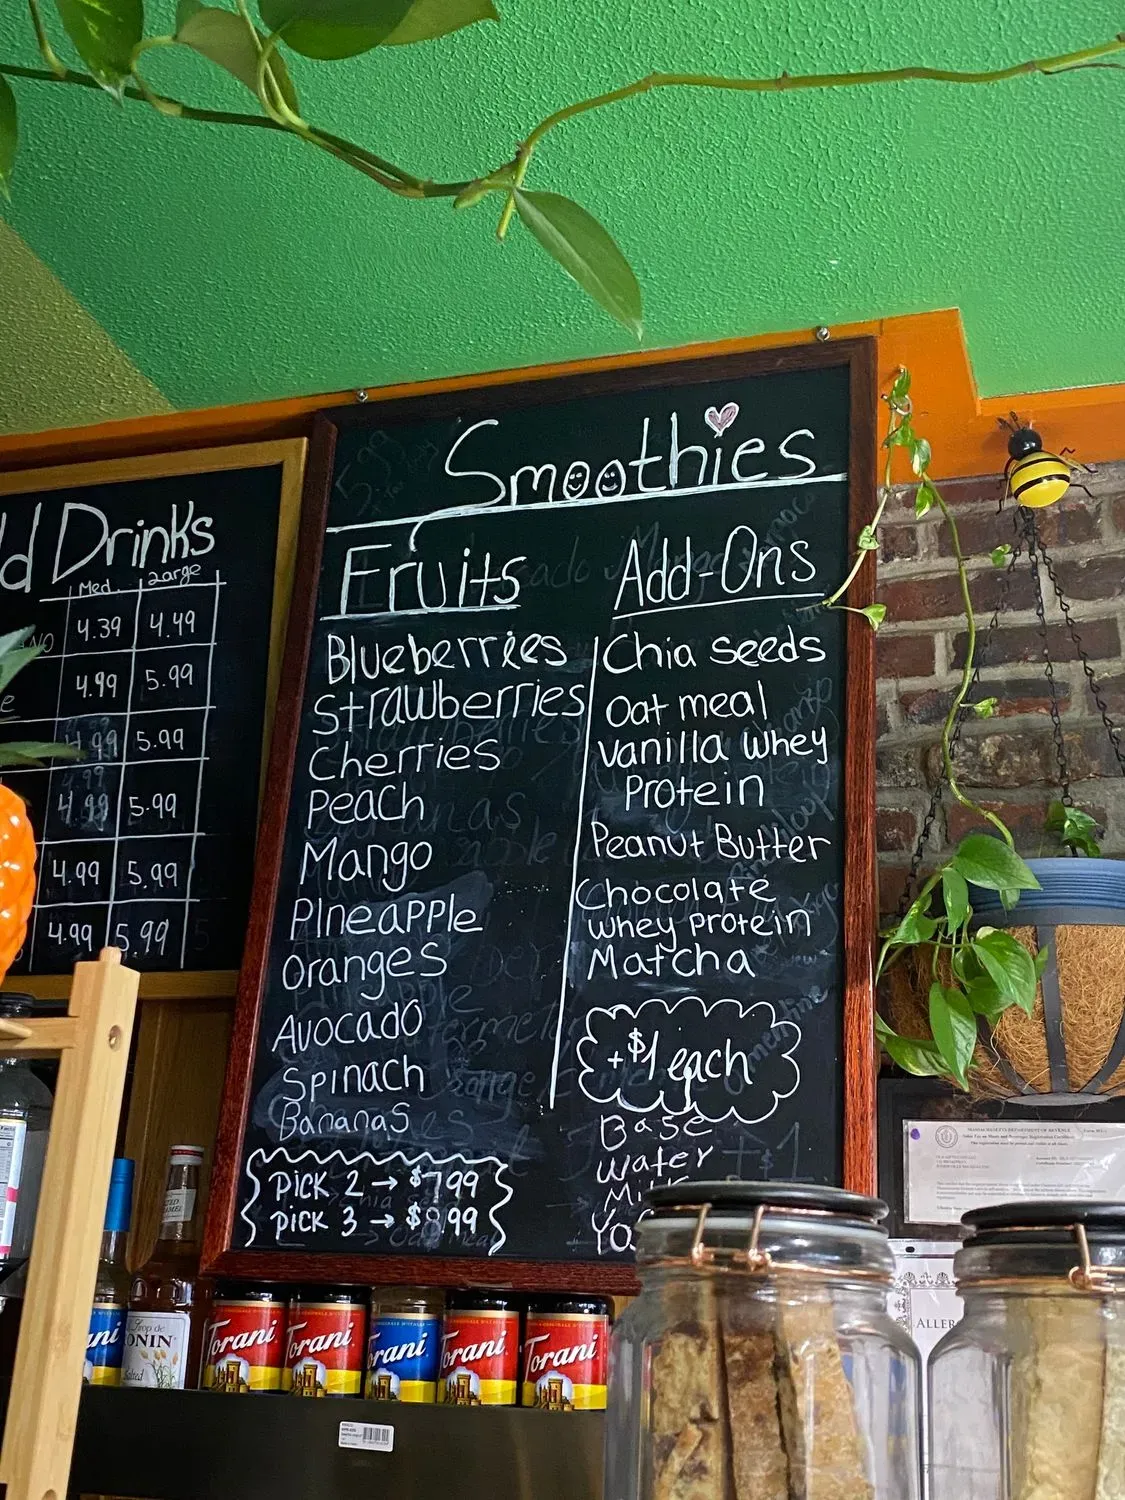 Smoothies
Fruits
Blueberries
Strawberries
Cherries
Peach
Mango
Pineapple
Oranges
Avocado
Spinach
Bananas
Pick 2 → $7.99
Pick 3 → $8.99
Add-Ons
Chia seeds
Oatmeal
Vanilla Whey
Protein
Peanut Butter
Chocolate
Whey Protein
Matcha
+$1 each
Base
Water
Milk
Yo
d Drinks
Med. Large
NO 4.39 4.49
e 4.99 5.99
4.99 5.99
4.99 5.99
4.99 5.99
4.99 5.99
MASSACHUSETTS DEPARTMENT OF REVENUE
ALLER
Sirop de
ONIN
Salted
ani
Torani
Torani
orani
orani
Torani